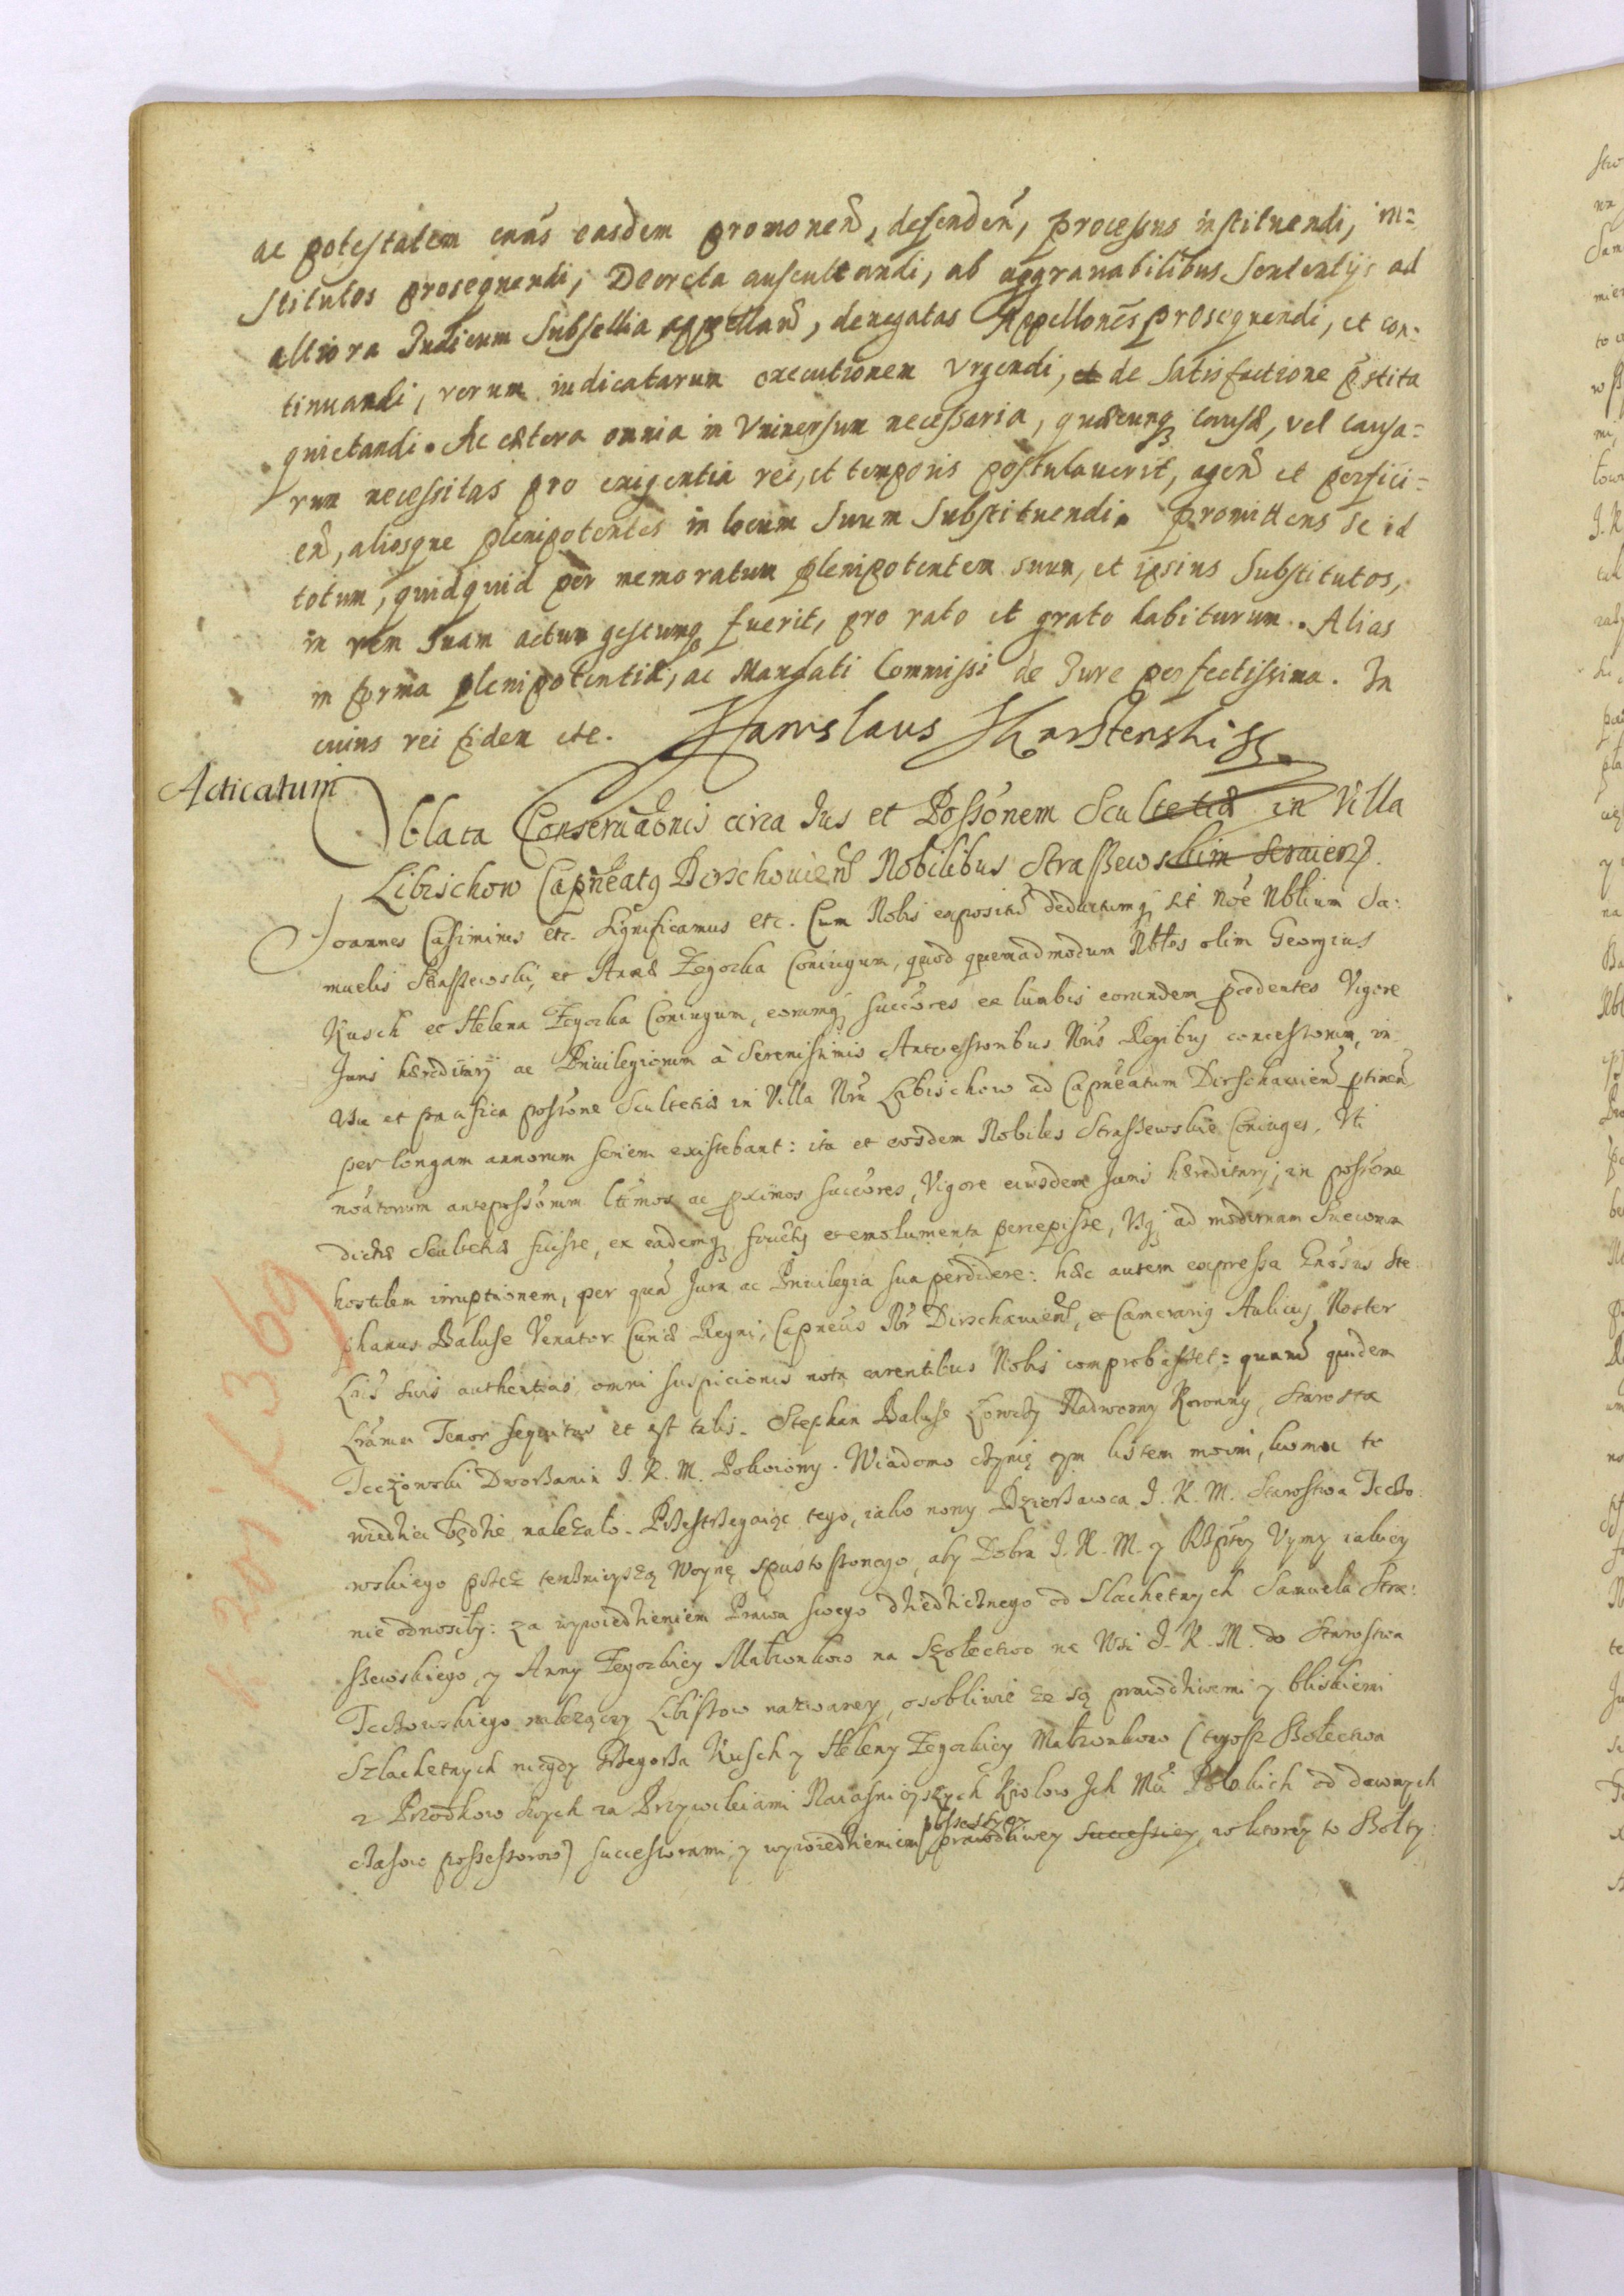 ac potestatem cãus easdem promonend, defendeñ, processus instituendi, in=
stitutos prosequendi, Decreta auscultandi, ab aggrauabilibus Sententijs ad
altiora Iudicum Subsellia appelland, denegatas Appellones prosequendi, et con=
tinuandi, rerum iudicatarum executionem vrgendi, et de Satisfactione pstita
quietandi. Ac cætera omnia in Vniuersum necessaria, quæcunq causæ, vel causa=
rum necessitas pro exigentia rei, et temporis postulauerit, agend et perfici=
end, aliosque plenipotentes in locum Suum Substituendi. Promittens se id
totum, quidquid per memoratum plenipotentem suum, et ipsius Substitutos,
in rem Suam actum gestumq fuerit, pro rato et grato habiturum. Alias
in forma plenipotentiæ, ac Mandati Commissi de Iure perfectissima. In
cuius rei fidem etc. Stanislaus Skarszewski
Acticatum
Oblata Conseruaonis circa Ius et Possonem Scultetiæ in Villa
Libischow Capneatq Dirschouiens Nobilibus Straszewskim seruien.
Joannes Casimirus etc. Significamus etc. Cum Nobis expositũ deductumq sit noe Nblium Sa:
muelis Straszewski, et Annæ Zegorka Coniugum, quod quemadmodum Nbles olim Georgius
Kusch et Helena Zegorka Coniugum, eorumq succores ex lumbis eorundem pcedentes Vigore
Juris hæreditarij ac Priuilegiorum à Serenissimis Antecessoribus Nris Regibus concessorum, in
vsu et pacifica possone Scultetiæ in Villa Nra Libischow ad Capneatum Dirschauien ptinen
per longam annorum seriem existebant: ita et eosdem Nobiles Straszewskie Coniuges, Vti
noatorum antepossorum ltimos ac pximos succores, Vigore eiusdem Juris hæreditarij, in possone
dictæ Scultetiæ fuisse, ex eademq fructus et emolumenta percepisse, Vsq ad modernam Suecorum
hostilem irruptionem, per quã Jura ac Priuilegia sua perdidere: hæc autem expressa Gnosus Ste
phanus Baluse Venator Curiæ Regni, Capneus Nr Dirschauiens, et Camerarius Aulicus Noster
Lris suis authenticis omni suspicionis nota carentibus Nobis comprobasset: quarũ quidem
Lrarum Tenor sequitur et est talis. Stephan Baluse Łowczy Nadworny Koronny, Starosta
Tczowski Dworzanin J. K. M. Pokoiowy. Wiadomo czynię tym listem moim, komu te
wiedzieć będzie należało. Przestrzegaiąc tego, iako nowy Dzierżawca J. K. M. Starostwa Tczo:
wskiego przez terznieyszą Woynę spustoszonego, aby Dobra J. K. M. y Rzptey Vymy iakiey
nie odnosiły: za wywiedzieniem Prawa swego dziedzicznego od Slachetnych Samuela Stra:
szewskiego, y Anny Zegorkiey Małżonkow na Szołectwo na Wsi J. K. M. do Starostwa
Tczowskiego należącey Libiszow nazwaney, osobliwie że są prawdziwemi y bliskiemi
Szlachetnych niegdy Grzegorza Kusch y Heleny Zegorkiey Małżonkow (tegosz Szołectwa
z Przodkow swych za Przywileiami Naiasnieyszych Krolow Ich Mci Polskich od dawnych
czasow possessorow) successorami, y wywiedzieniem prawdziwey successiey possessyey, w ktorey to Szołty: